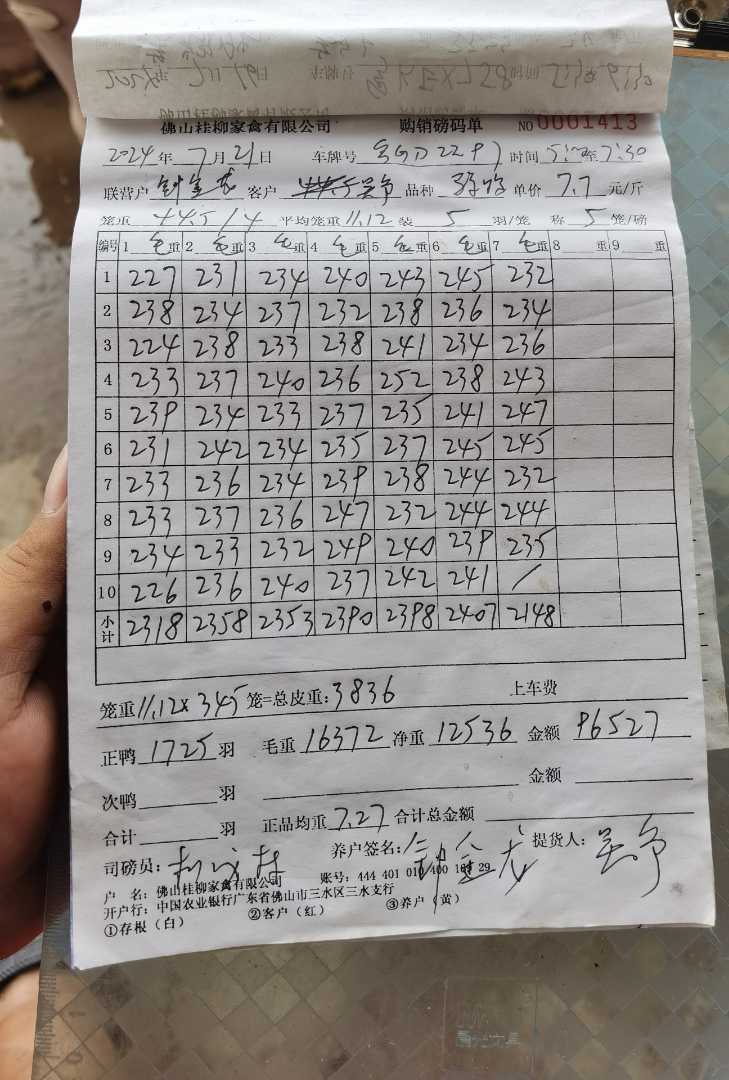 佛山桂柳家禽有限公司 购销磅码单 NO 0001413
2024年 7月21日 车牌号 时间 至7:30
联营户 客户 吴争 品种 单价 7.7 元/斤
笼重 44.5/4 平均笼重 11.12 装 5 羽/笼 称 5 笼/磅
编号 1 毛重 2 毛重 3 毛重 4 毛重 5 毛重 6 毛重 7 毛重 8 重 9 重
1 227 231 234 240 243 245 232
2 238 234 237 232 238 236 234
3 224 238 233 238 241 234 236
4 233 237 240 236 252 238 243
5 239 234 233 237 235 241 247
6 231 242 234 235 237 245 245
7 233 236 234 239 238 244 232
8 233 237 236 247 232 244 244
9 234 233 232 249 240 239 235
10 226 236 240 237 242 241 /
小计 2318 2358 2353 2390 2398 2407 2148
笼重 11.12 x 345 笼=总皮重: 3836 上车费
正鸭 1725 羽 毛重 16372 净重 12536 金额 96527
次鸭 羽 金额
合计 羽 正品均重 7.27 合计总金额
司磅员: 养户签名: 钟金龙 提货人: 吴争
户 名: 佛山桂柳家禽有限公司 账号: 444 401 010 400 29
开户行: 中国农业银行广东省佛山市三水区三水支行
①存根(白) ②客户(红) ③养户(黄)